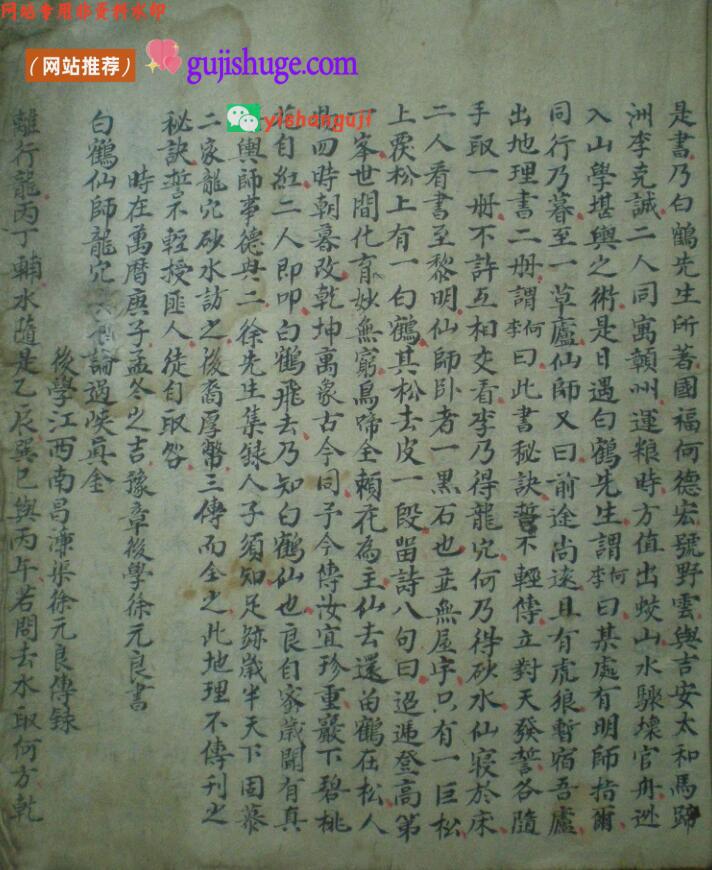 网站专用非资料水印
（网站推荐）
gujishuge.com
yishanguji
是書乃白鶴先生所著國福何德宏號野雲與吉安太和馬蹄
洲李克誠二人同寓贛州運粮時方值出蛟山水驟壞官舟逃
入山學堪輿之術是日遇白鶴先生謂何李曰某處有明師指爾
同行乃暮至一草廬仙師又曰前途尚遠且有虎狼暫宿吾廬
出地理書二册謂何李曰此書秘訣誓不輕傳立對天發誓各隨
手取一册不許互相交看李乃得龍穴何乃得砂水仙寢於床
二人看書至黎明仙師卧者一黑石也並無屋宇只有一巨松
上覆松上有一白鶴其松去皮一段留詩八句曰迢遞登高第
一峯世間化育妙無窮鳥蹄全賴花為主仙去還留鶴在松人
四時朝暮改乾坤萬象古今同予今傳汝宜珍重巖下碧桃
自紅二人即叩白鶴飛去乃知白鶴仙也良自家歲閒有真
輿師事德與二徐先生集錄人子須知足跡歲半天下因慕
二家龍穴砂水訪之後裔厚幣三傳而全之此地理不傳刊之
秘訣誓不輕授匪人徒自取咎
時在萬曆庚子孟冬之吉豫章後學徐元良書
白鶴仙師龍穴論過峽真全
後學江西南昌溓渠徐元良傳錄
離行龍丙丁輔水隨是乙辰巽巳與丙午若問去水取何方乾